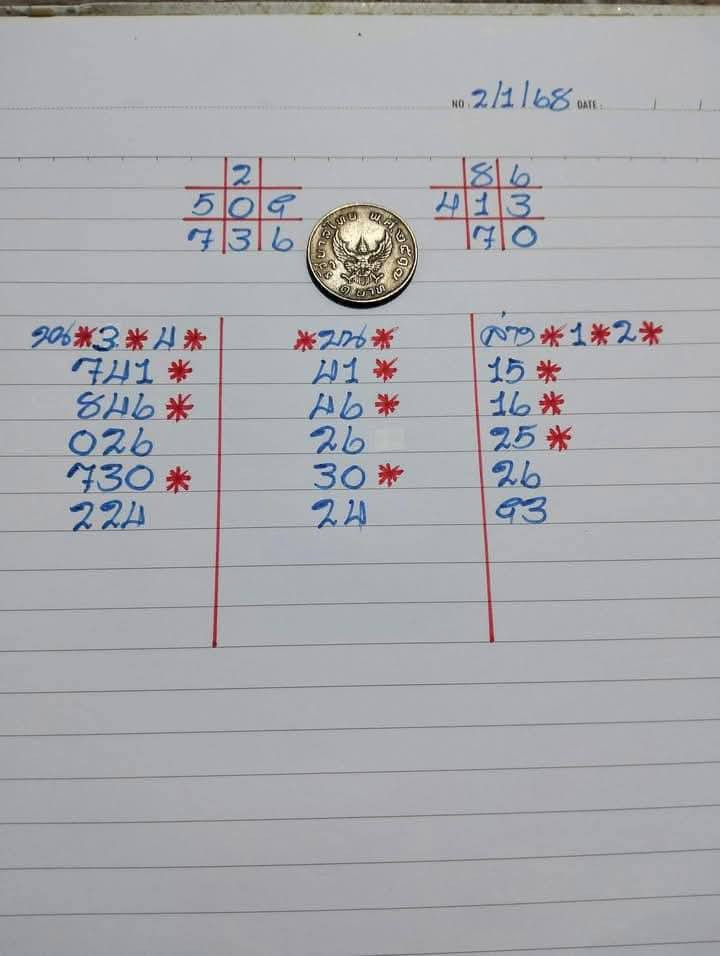 NO. 2/1/68 DATE:
2
5 0 9
7 3 6
8 6
4 1 3
7 0
รัฐบาลไทย พ.ศ.๒๕๑๗
๑ บาท
บน*3*4*
741*
846*
026
730*
224
*บน*
41*
46*
26
30*
24
ล่าง*1*2*
15*
16*
25*
26
93